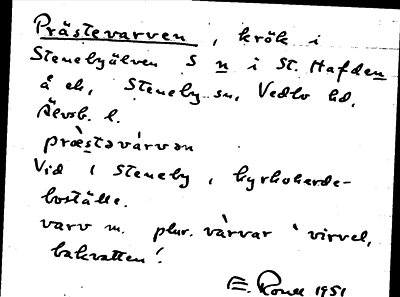 Prästevarven, krök i
Stenebyälven S n i St. Hafden
å ek, Steneby sn, Vedbo hd,
Älvsb. l.
præ̀stəvárvən
Vid i Steneby, kyrkoherde-
boställe.
varv m. plur. vàrvar 'virvel,
bakvatten'.
E. 1951